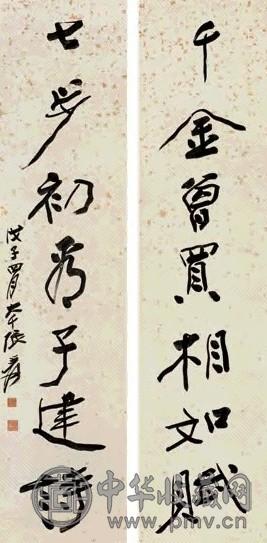 千金曾買相如賦
七步初看子建詩
戊子四月 大千張爰
中华收藏网
www.pmv.cn